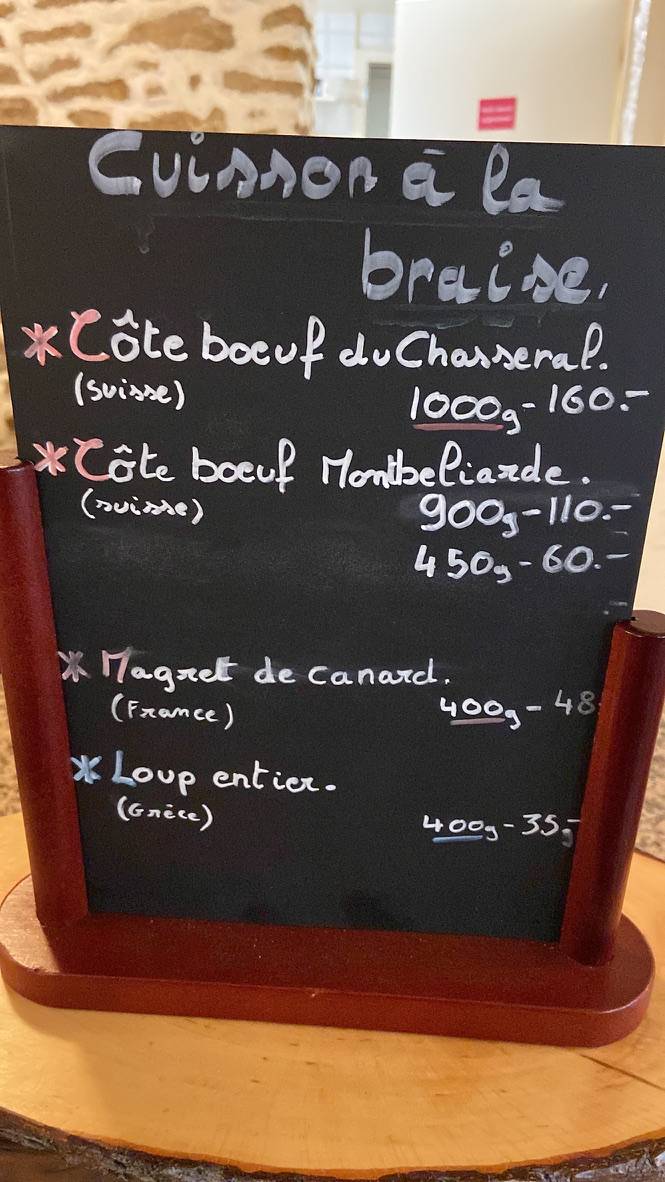 Cuisson à la
braise.
* Côte boeuf du Chasseral.
(Suisse) 1000g - 160.-
* Côte boeuf Montbeliarde.
(suisse) 900g - 110.-
450g - 60.-
* Magret de canard.
(France) 400g - 48
* Loup entier.
(Grèce) 400g - 35,-